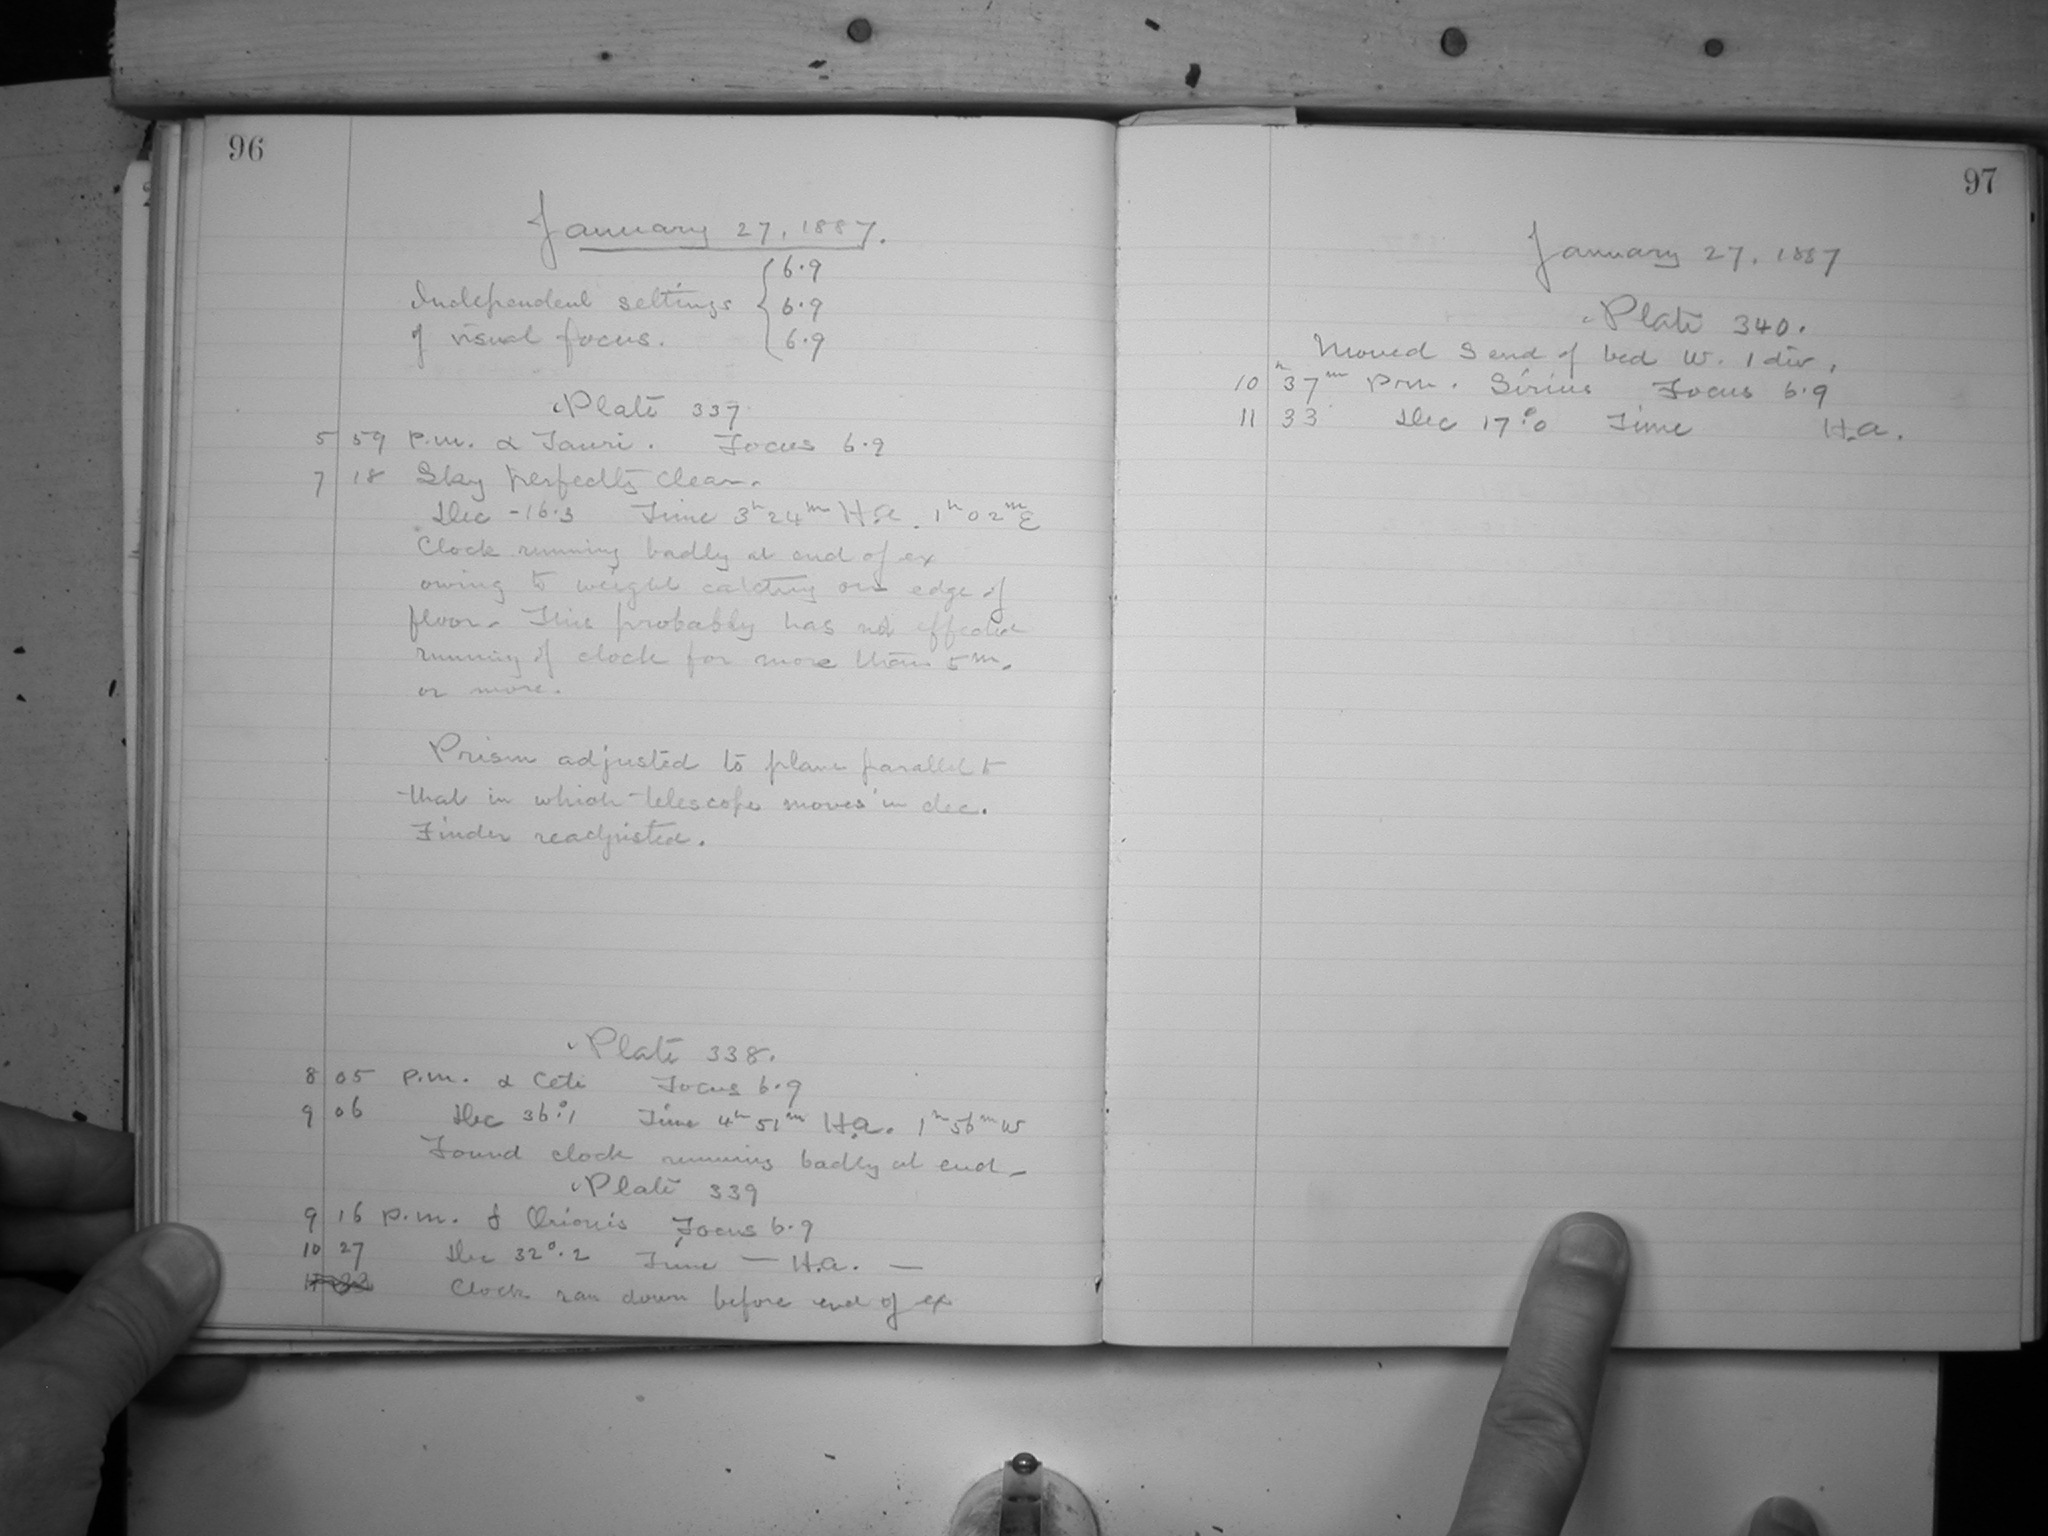 96
January 27, 1887.
Independent settings { 6.9
6.9
of visual focus. 6.9
Plate 337
5 59 p.m. α Tauri. Focus 6.9
7 18 Sky perfectly clear.
Dec -16.3 Time 3h 24m H.a. 1h 02m E
Clock running badly at end of ex
owing to weight catching on edge of
floor. This probably has not effected
running of clock for more than 5m.
or more.
Prism adjusted to plane parallel to
that in which telescope moves in dec.
Finder readjusted.
Plate 338.
8 05 p.m. α Ceti Focus 6.9
9 06 Dec 36°.1 Time 4h 51m H.a. 1h 56m W
Found clock running badly at end
Plate 339
9 16 p.m. δ Orionis Focus 6.9
10 27 Dec 32°.2 Time — H.a. —
Clock ran down before end of ex
97
January 27, 1887
Plate 340.
Moved S end of bed W. 1 div.
10h 37m p.m. Sirius Focus 6.9
11 33 Dec 17°.0 Time H.a.